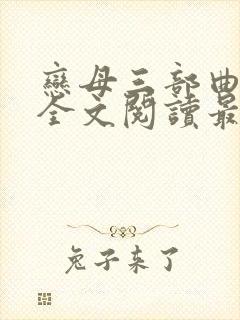 戀母三部曲
全文閱讀最
兔子来了